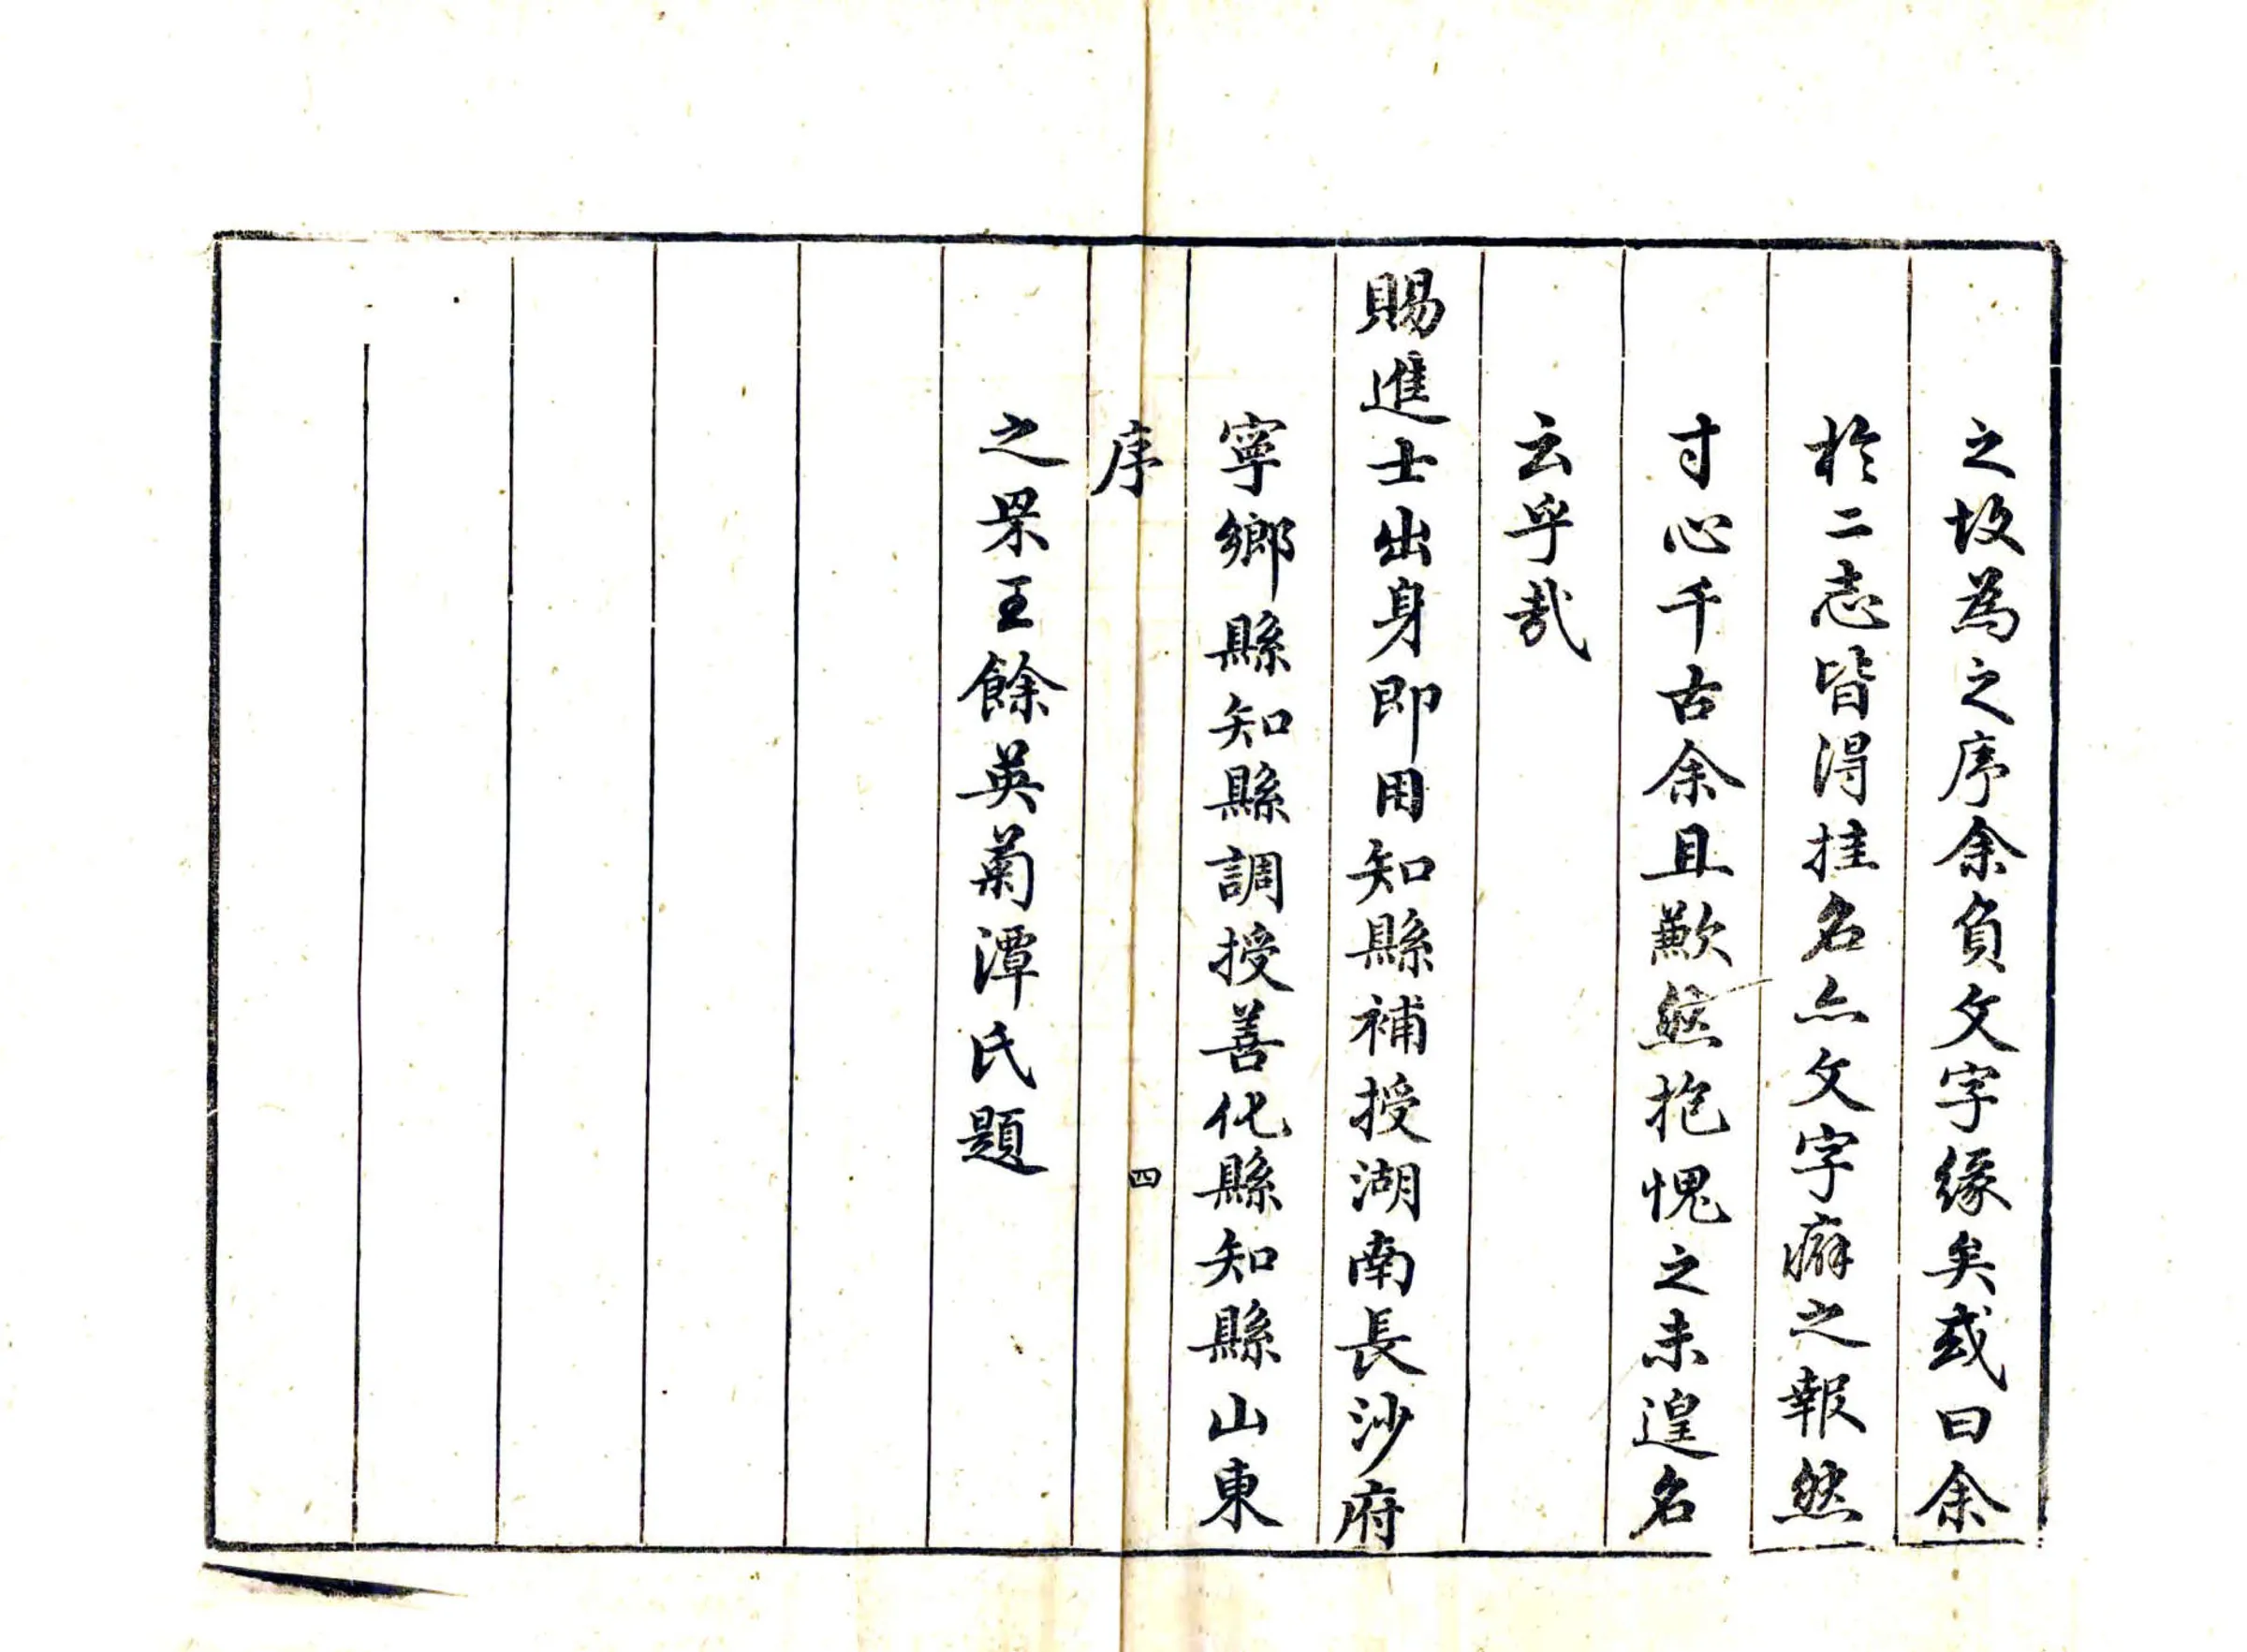 之故為之序余負文字緣矣或曰余
於二志皆得挂名亦文字癖之報然
寸心千古余且歉然抱愧之未遑名
云乎哉
賜進士出身即用知縣補授湖南長沙府
寧鄉縣知縣調授善化縣知縣山東
序
四
之罘王餘英菊潭氏題